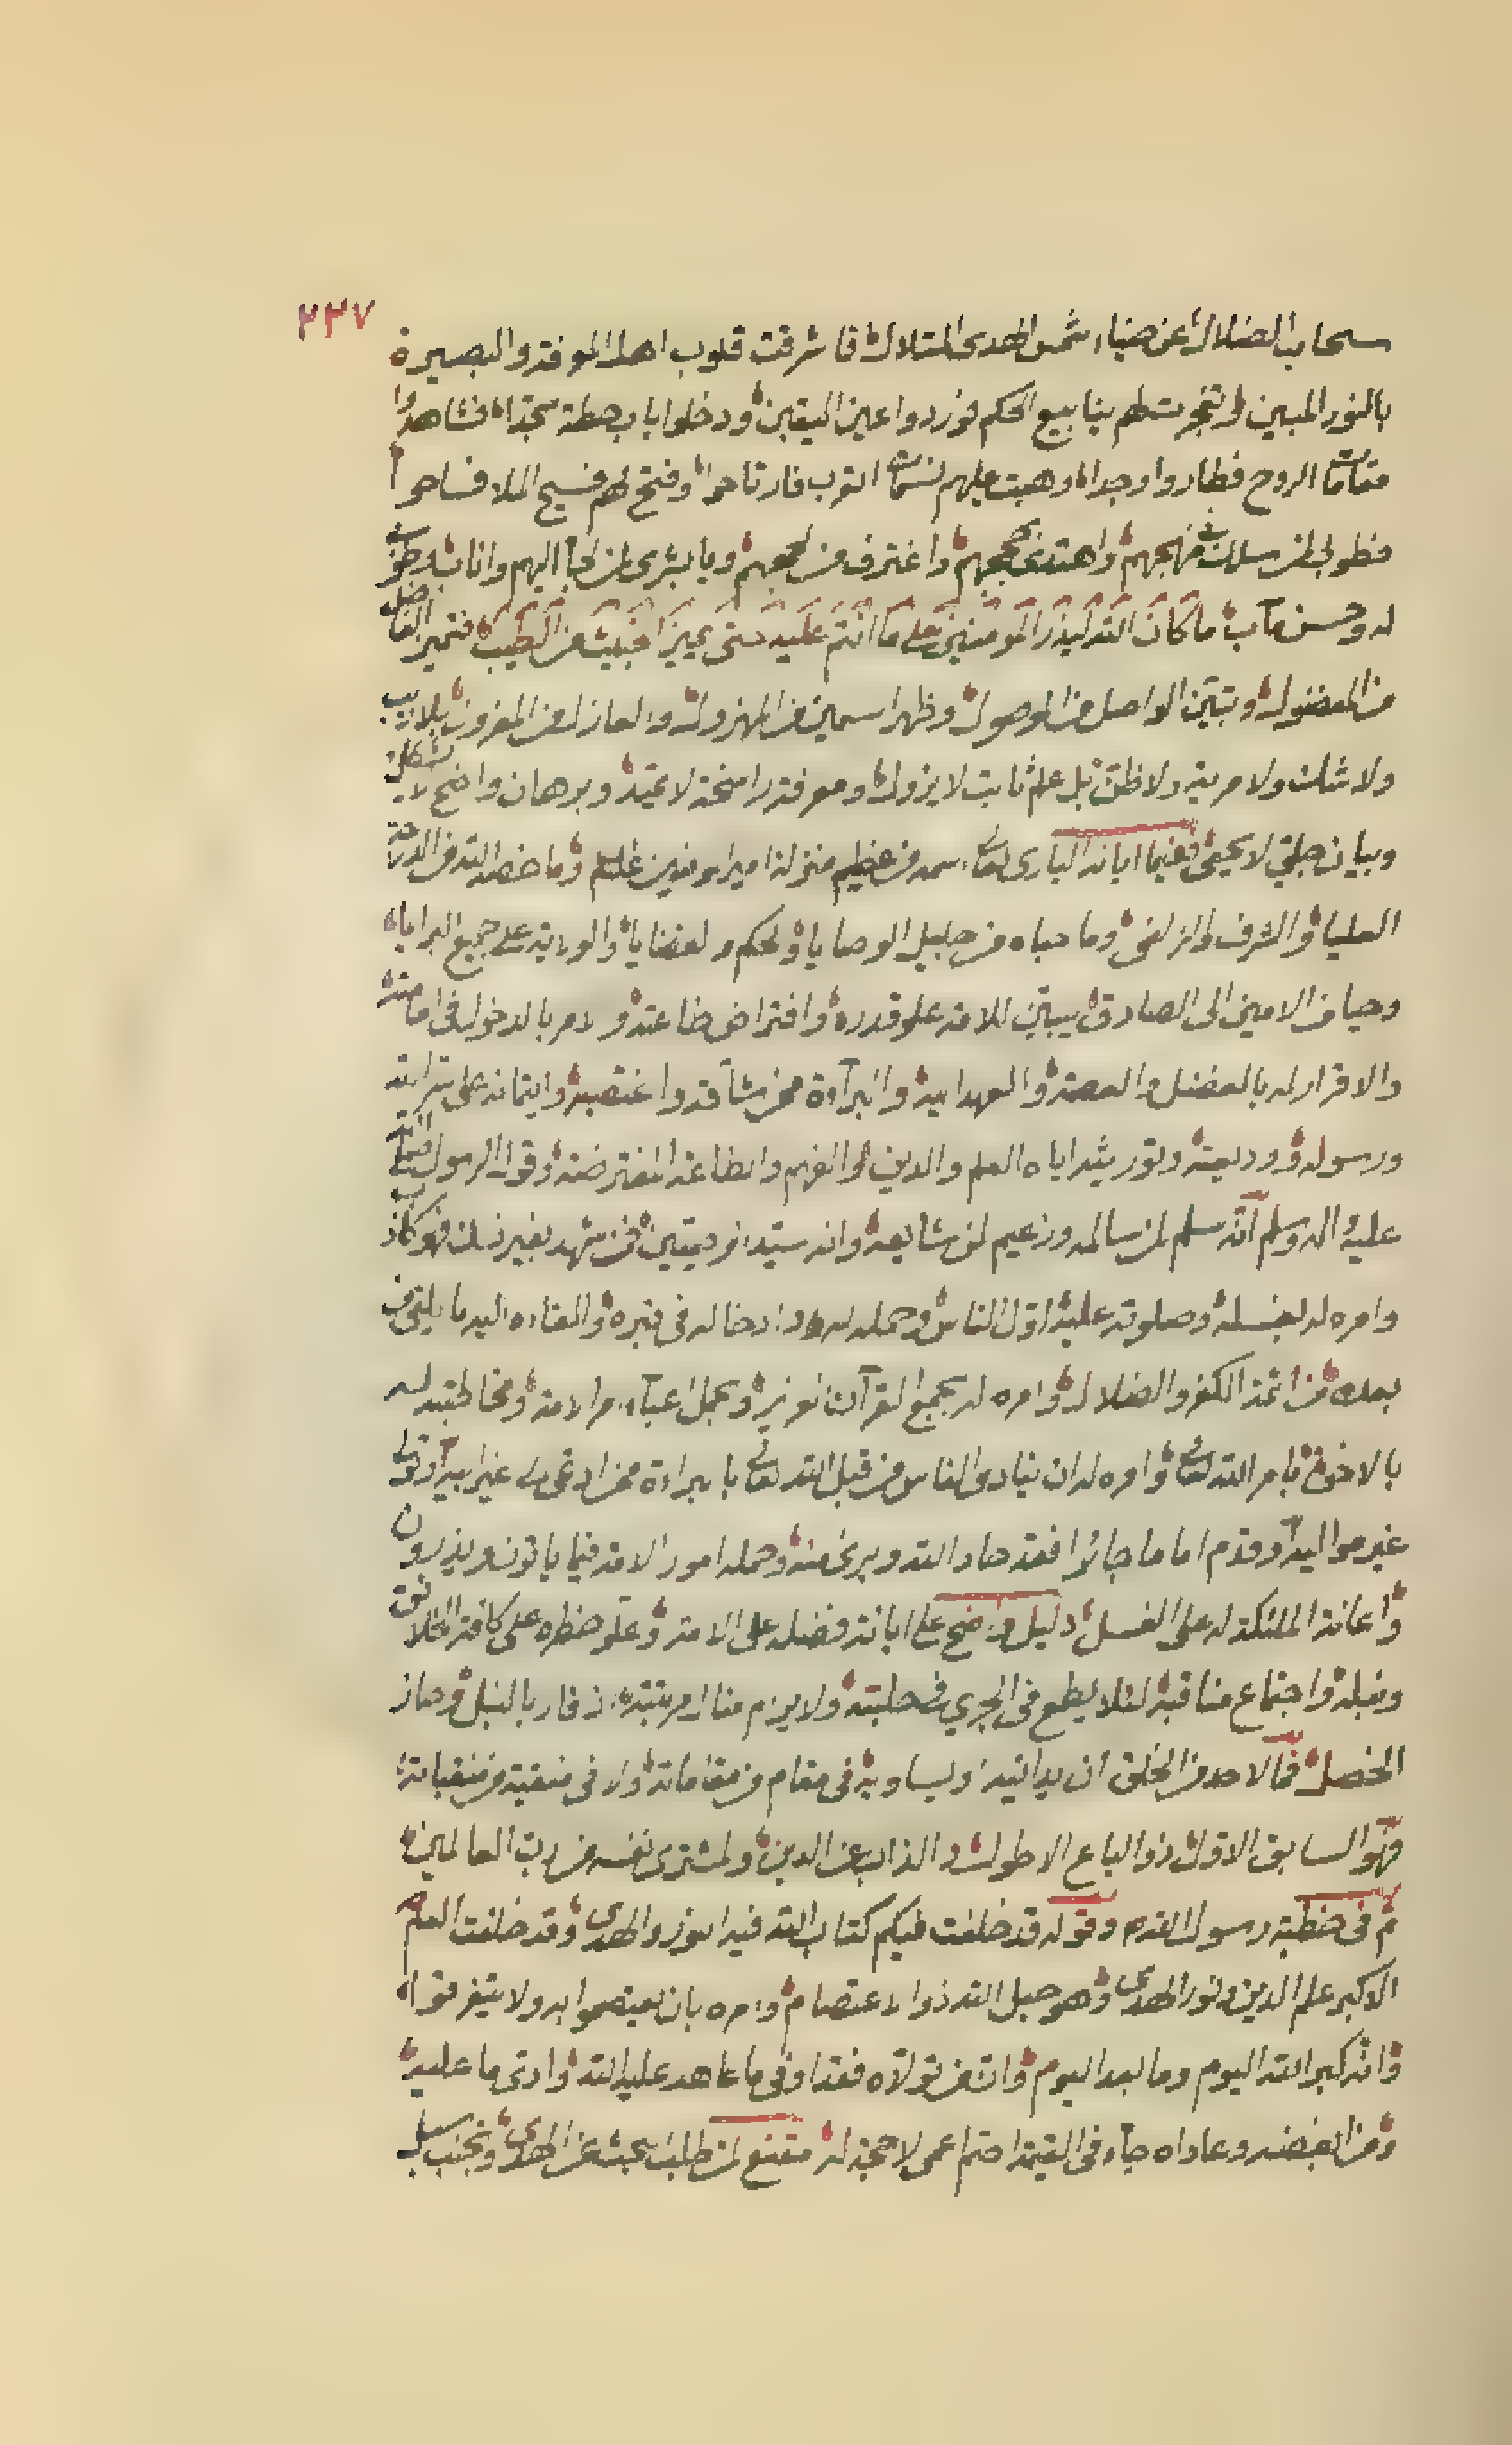 ٢٣٧
سحاب الضلال عن ضياء شمس الهدى المتلال فاشرقت قلوب اهل المعرفة والبصيرة
بالنور المبين وتفجرت لهم ينابيع الحكم فوردوا عين اليقين ودخلوا باب حطة سجدا فشاهدوا
مقامات الروح فطاروا وجدا وهبت عليهم نسمات القرب فارتاحوا وفتح لهم فسيح الملا فساحوا
فطوبى لمن سلك منهجهم واهتدى بحججهم واغترف من لججهم ويا بشرى لمن لجأ اليهم واناب طوبى
له وحسن مآب ما كان الله ليذر المومنين على ما انتم عليه حتى يميز الخبيث من الطيب فتميز الفاضل
من المفضول وتبين الواصل من الموصول وظهر السمين من المهزول والعازل من المعزول بلا ريب
ولا شك ولا مرية ولا ظن بل علم ثابت لا يزول ومعرفة راسخة لا تميد وبرهان واضح لا يشكل
وبيان جلي لا يخفى ففيما ابانه البارى تعالى سمه من عظيم منزلة امير المومنين علم وما خصه الله من الدرجة
العليا والشرف والزلفى وما حباه من جليل الوصايا والحكم والقضايا والولاية على جميع البرايا
وحيا من الامين الى الصادق يبين للامة علو قدره وافتراض طاعته والامر بالدخول فى امامته
والاقرار له بالفضل والعصمة والعهد اليه والبرآءة ممن شاقه واغتصبه وايتمانه على سر الله
ورسوله ووديعته وتوريثه اياه العلم والدين والفهم والطاعة المفترضة وقول الرسول صلى الله
عليه واله وسلم انه سلم لمن سالمه وزعيم لمن شايعه وانه سيد الوصيين فمن شهد بغير ذلك فهو كاذب
وامره له بغسله وصلوته عليه اول الناس وحمله له وادخاله فى قبره والقاءه اليه ما يلقى من
بعده من ائمة الكفر والضلال وامره له بجمع القرآن العزيز وبحمل اعبآء امر الامة ومخاطبته له
بالاخوة بامر الله تعالى وامره له ان ينادى الناس من قبل الله تعالى بالبراءة ممن ادعى الى غير ابيه او تولى
غير مواليه او قدم اماما جائرا فقد حاد الله وبرئ منه وحمله امور الامة فيما ياتون ويذرون
واعانة الملئكة له على الغسل دليل واضح على ابانة وفضله على الامة وعلو خطره على كافة الخلائق
ونبله واجتماع مناقبه لئلا يطمع فى الجري فى حلبته ولا يرام منال مرتبته اذ فاز بالنبل وحاز
الخصل فما لاحد من الخلق ان يدانيه او يساويه فى مقام من مقاماته ولا فى منقبة من منقباته
فهو السابق الاول ذو الباع الاطول والذاب عن الدين والمشترى نفسه من رب العالمين
ثم فى خطبة رسول الله ص وقوله قد خلفت فيكم كتاب الله فيه النور والهدى وقد خلفت العلم
الاكبر علم الدين ونور الهدى وهو حبل الله ذو الاعتصام وامره بان يعتصموا به ولا يتفرقوا
وانه كبر الله اليوم وما بعد اليوم وان من تولاه فقد اوفى ما عاهد عليه الله وادى ما عليه
ومن ابغضه وعاداه جآء فى القيمة اصم اعمى لا حجة له مقنع لمن طلب بحث عن الهدى وتجنب سبل